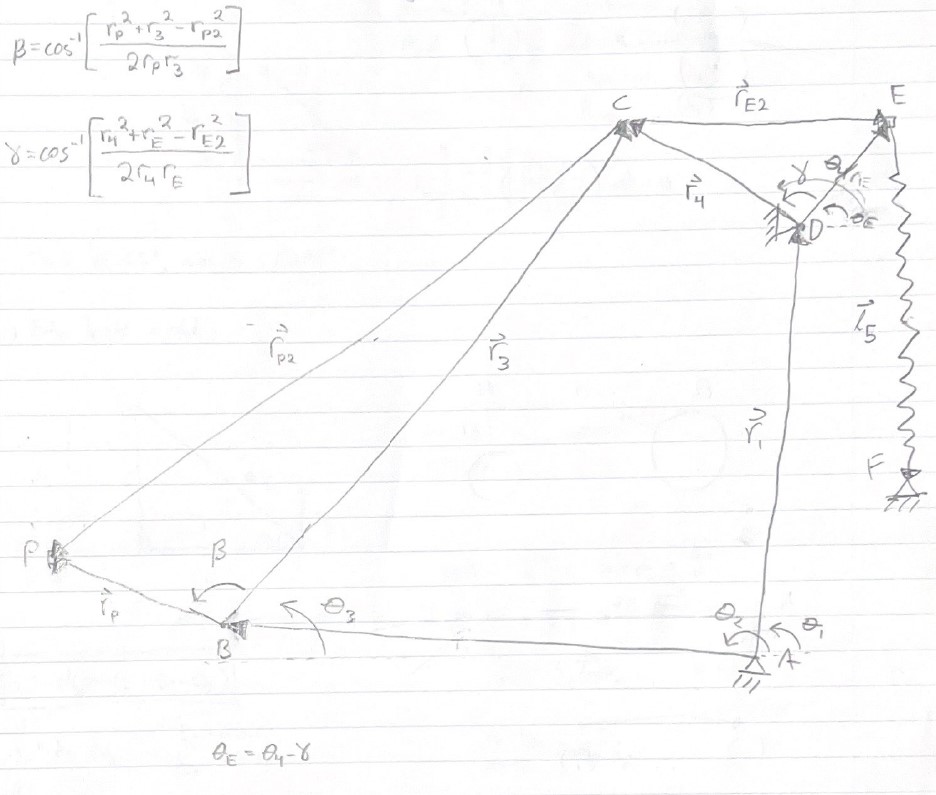 β = cos⁻¹[(r_P² + r_3² - r_P2²) / (2 r_P r_3)]
γ = cos⁻¹[(r_4² + r_E² - r_E2²) / (2 r_4 r_E)]
C
r⃗_E2
E
γ
θ_4
r_E
r⃗_4
D
θ_E
r⃗_P2
r⃗_3
l⃗_5
r⃗_1
F
P
β
r⃗_P
θ_3
θ_2
θ_1
B
A
θ_E = θ_4 - γ